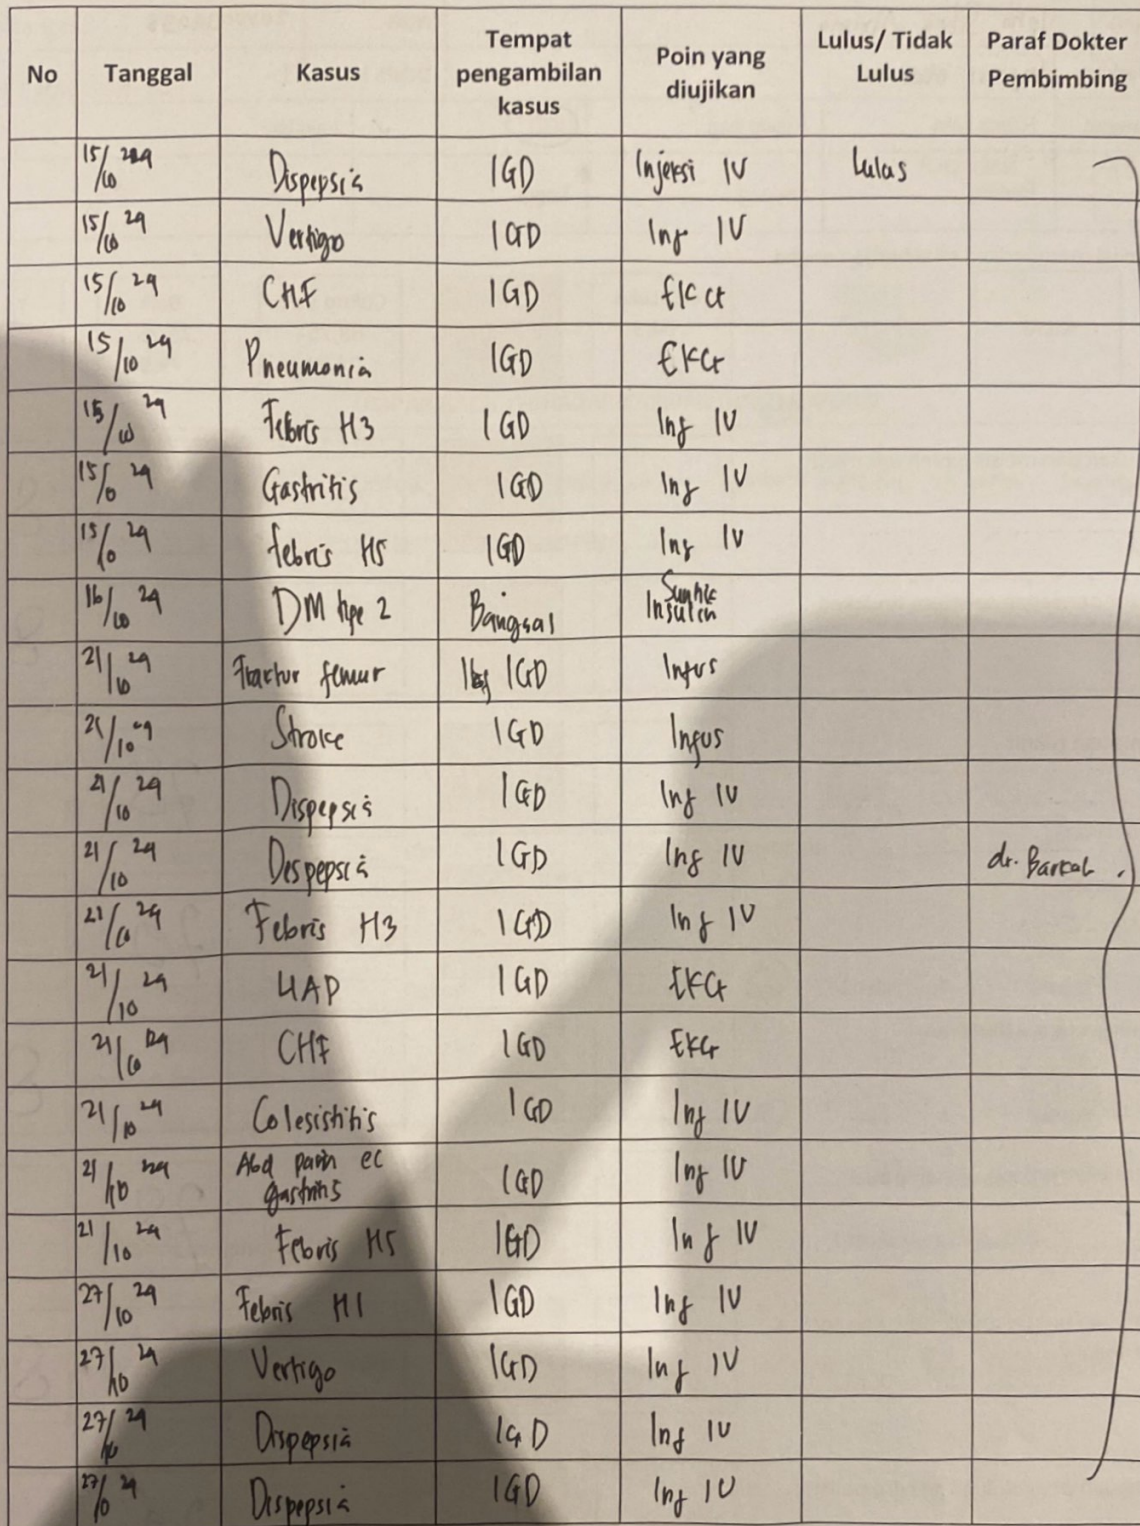 No Tanggal Kasus Tempat pengambilan kasus Poin yang diujikan Lulus/ Tidak Lulus Paraf Dokter Pembimbing
15/10 24 Dispepsia IGD Injeksi IV Lulus
15/10 24 Vertigo IGD Inj IV
15/10 24 CHF IGD EKG
15/10 24 Pneumonia IGD EKG
15/10 24 Febris H3 IGD Inj IV
15/10 24 Gastritis IGD Inj IV
15/10 24 febris H5 IGD Inj IV
16/10 24 DM type 2 Bangsal Suntik Insulin
21/10 24 Fractur femur IGD Infus
21/10 24 Stroke IGD Infus
21/10 24 Dispepsia IGD Inj IV
21/10 24 Despepsia IGD Inj IV dr. Barkah
21/10 24 Febris H3 IGD Inj IV
21/10 24 UAP IGD EKG
21/10 24 CHF IGD EKG
21/10 24 Colesistitis IGD Inj IV
21/10 24 Abd pain ec gastritis IGD Inj IV
21/10 24 Febris H5 IGD Inj IV
27/10 24 Febris H1 IGD Inj IV
27/10 24 Vertigo IGD Inj IV
27/10 24 Dispepsia IGD Inj IV
27/10 24 Dispepsia IGD Inj IV